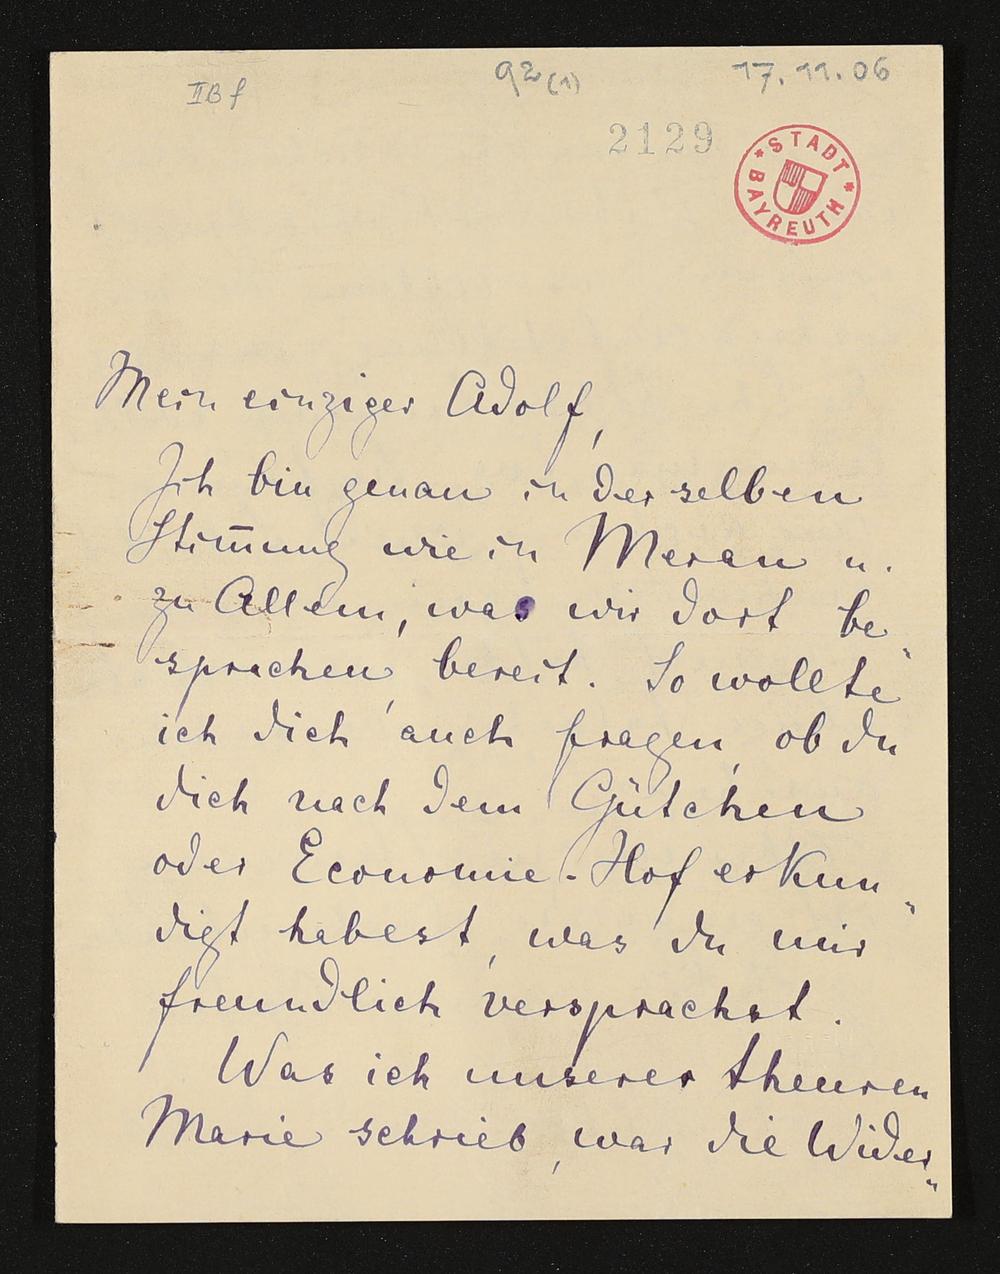 II B f
92 (1)
17. 11. 06
2129
* STADT *
BAYREUTH
Mein einziger Adolf,
Ich bin genau in derselben
Stim̅ung wie in Meran u.
zu Allem, was wir dort be„
sprachen, bereit. So wollte
ich dich auch fragen, ob du
dich nach dem Gütchen
oder Economie-Hof erkun„
digt habest, was du mir
freundlich versprachst.
Was ich unserer theuren
Marie schrieb, war die Wider„